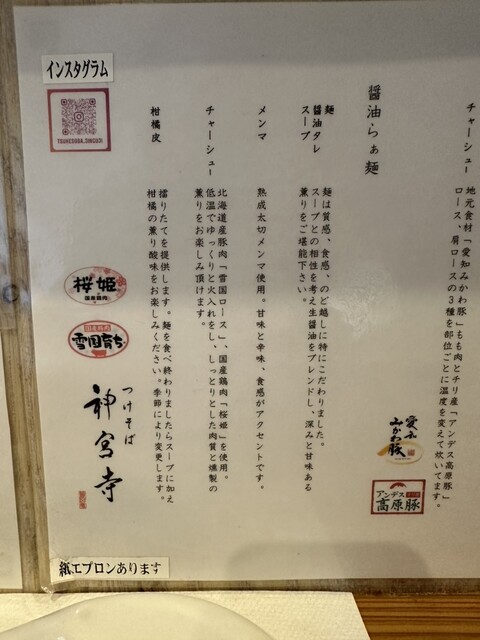 インスタグラム
TSUKESOBA.JINGUJI
チャーシュー
地元食材「愛知みかわ豚」もも肉とチリ産「アンデス高原豚」
ロース、肩ロースの3種を部位ごとに温度を変えて炊いてます。
愛知
みかわ豚
アンデス
高原豚
醤油らぁ麺
麺
醤油タレ
スープ
麺は質感、食感、のど越しに特にこだわりました。
スープとの相性を考え生醤油をブレンドし、深みと甘味ある
薫りをご堪能下さい。
メンマ
熟成太切メンマ使用。甘味と辛味、食感がアクセントです。
チャーシュー
北海道産豚肉「雪国ロース」、国産鶏肉「桜姫」を使用。
低温でゆっくりと火入れをし、しっとりとした肉質と燻製の
薫りをお楽しみ頂けます。
柑橘皮
擂りたてを提供します。麺を食べ終わりましたらスープに加え
柑橘の薫り酸味をお楽しみください。季節により変更します。
桜姫
国産鶏肉
雪国育ち
つけそば
神宮寺
紙エプロンあります